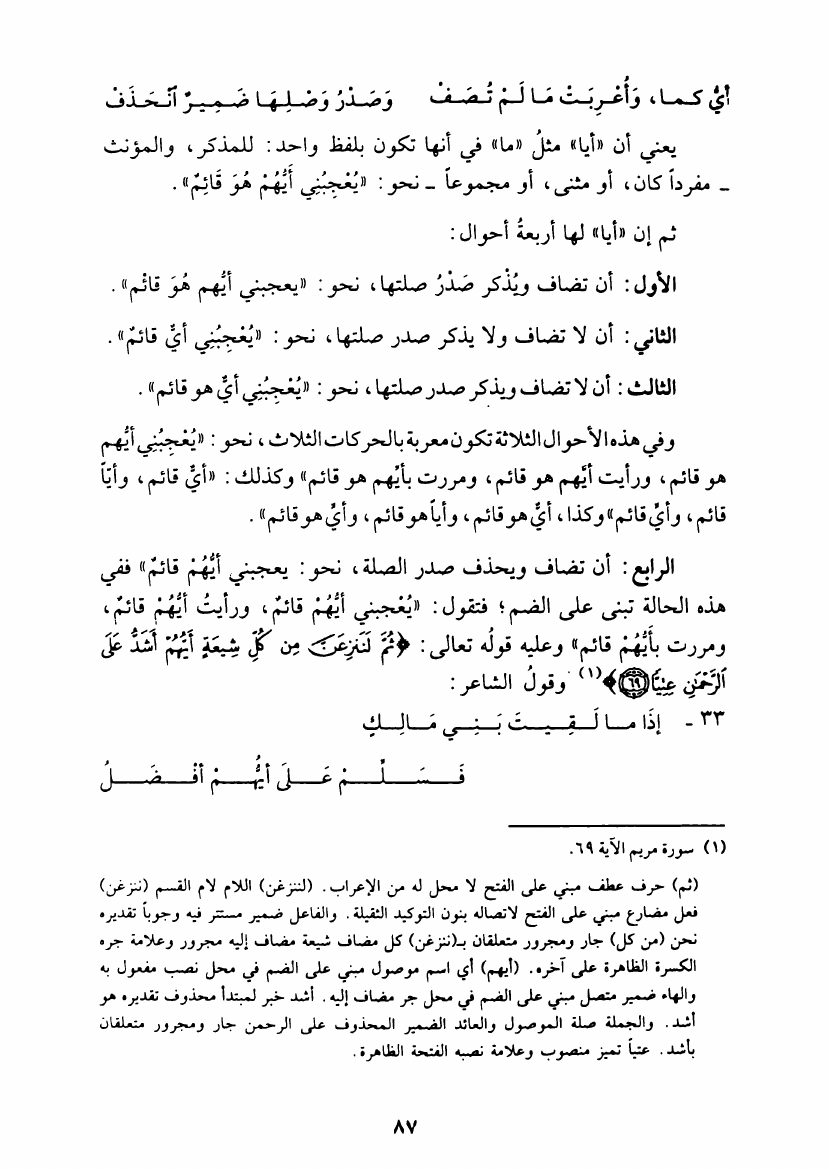 أَيٌّ كـمـا، وَأُعْـرِبَـتْ مَـا لَـمْ تُـضَـفْ وَصَـدْرُ وَصْـلِـهَـا ضَـمِـيـرٌ ٱنْـحَـذَفْ
يعني أن «أيا» مثلُ «ما» في أنها تكون بلفظ واحد: للمذكر، والمؤنث
ـ مفرداً كان، أو مثنى، أو مجموعاً ـ نحو: «يُعْجِبُنِي أَيُّهُمْ هُوَ قَائِمٌ».
ثم إن «أيا» لها أربعةُ أحوال:
الأول: أن تضاف ويُذْكر صَدْرُ صلتها، نحو: «يعجبني أيُّهم هُوَ قائم».
الثاني: أن لا تضاف ولا يذكر صدر صلتها، نحو: «يُعْجِبُنِي أيٌّ قائمٌ».
الثالث: أن لا تضاف ويذكر صدر صلتها، نحو: «يُعْجِبُنِي أيٌّ هو قائم».
وفي هذه الأحوال الثلاثة تكون معربة بالحركات الثلاث، نحو: «يُعْجِبُنِي أيُّهم
هو قائم، ورأيت أيَّهم هو قائم، ومررت بأيِّهم هو قائم» وكذلك: «أيٌّ قائم، وأيّاً
قائم، وأيٍّ قائم» وكذا، أيٌّ هو قائم، وأياً هو قائم، وأيٍّ هو قائم».
الرابع: أن تضاف ويحذف صدر الصلة، نحو: يعجبني أيُّهُمْ قائمٌ» ففي
هذه الحالة تبنى على الضم؛ فتقول: «يُعْجبني أيُّهُمْ قائمٌ، ورأيتُ أيُّهُمْ قائمٌ،
ومررت بأيُّهُمْ قائم» وعليه قولُه تعالى: ﴿ثُمَّ لَنَنزِعَنَّ مِن كُلِّ شِيعَةٍ أَيُّهُمْ أَشَدُّ عَلَى
ٱلرَّحْمَٰنِ عِتِيًّا ۝٦٩﴾(١) وقولُ الشاعر:
٣٣ - إذَا مـا لَـقِـيـتَ بَـنِـي مَـالِـكٍ
فَـسَـلِّـمْ عَـلَى أيُّـهُـمْ أفْـضَـلُ
(١) سورة مريم الآية ٦٩.
(ثم) حرف عطف مبني على الفتح لا محل له من الإعراب. (لننزغن) اللام لام القسم (ننزغن)
فعل مضارع مبني على الفتح لاتصاله بنون التوكيد الثقيلة. والفاعل ضمير مستتر فيه وجوباً تقديره
نحن (من كل) جار ومجرور متعلقان بـ(ننزغن) كل مضاف شيعة مضاف إليه مجرور وعلامة جره
الكسرة الظاهرة على آخره. (أيهم) أي اسم موصول مبني على الضم في محل نصب مفعول به
والهاء ضمير متصل مبني على الضم في محل جر مضاف إليه. أشد خبر لمبتدأ محذوف تقديره هو
أشد. والجملة صلة الموصول والعائد الضمير المحذوف على الرحمن جار ومجرور متعلقان
بأشد. عتياً تميز منصوب وعلامة نصبه الفتحة الظاهرة.
٨٧